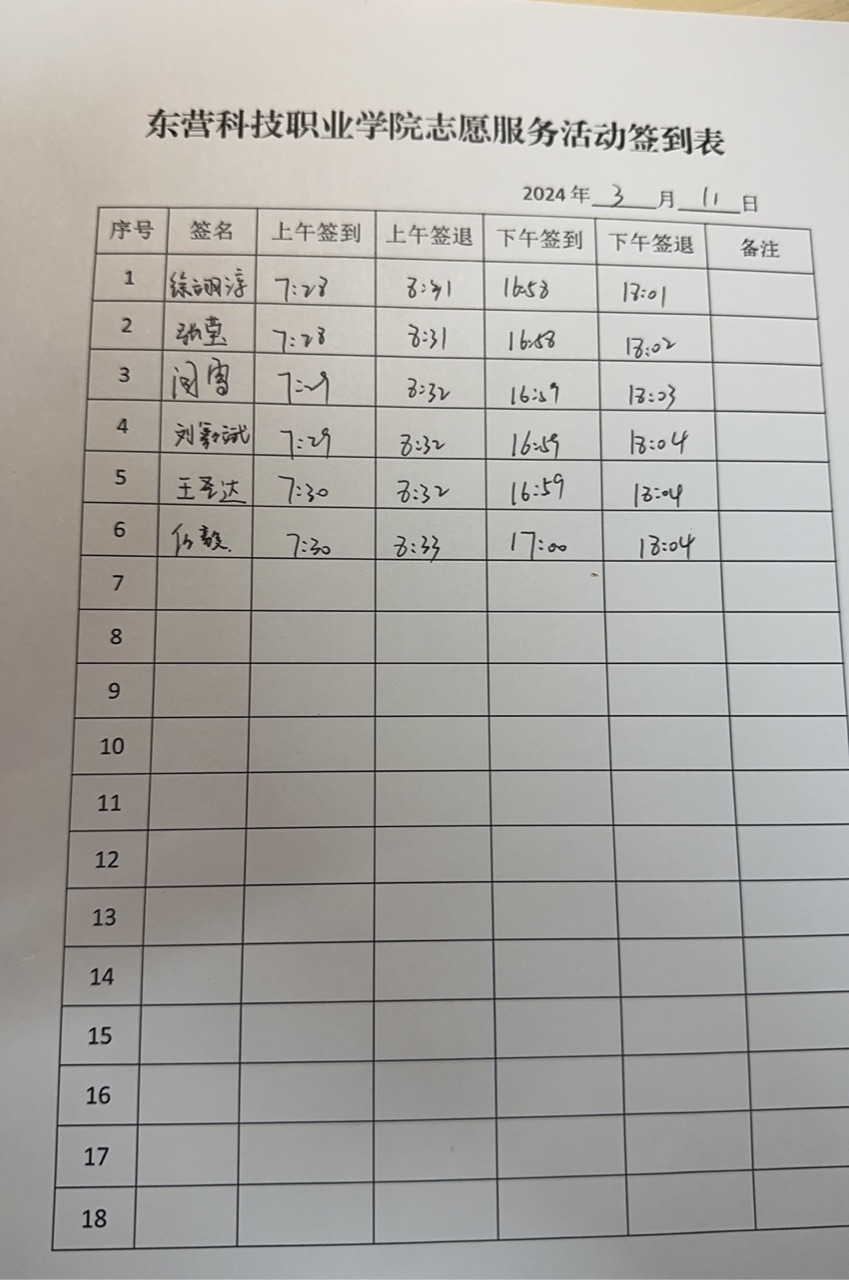 东营科技职业学院志愿服务活动签到表
2024年 3 月 11 日
序号 签名 上午签到 上午签退 下午签到 下午签退 备注
1 徐翊淳 7:28 8:31 16:58 18:01
2 张莹 7:28 8:31 16:58 18:02
3 闵雪 7:29 8:32 16:59 18:03
4 刘 7:29 8:32 16:59 18:04
5 王圣达 7:30 8:32 16:59 18:04
6 7:30 8:33 17:00 18:04
7
8
9
10
11
12
13
14
15
16
17
18